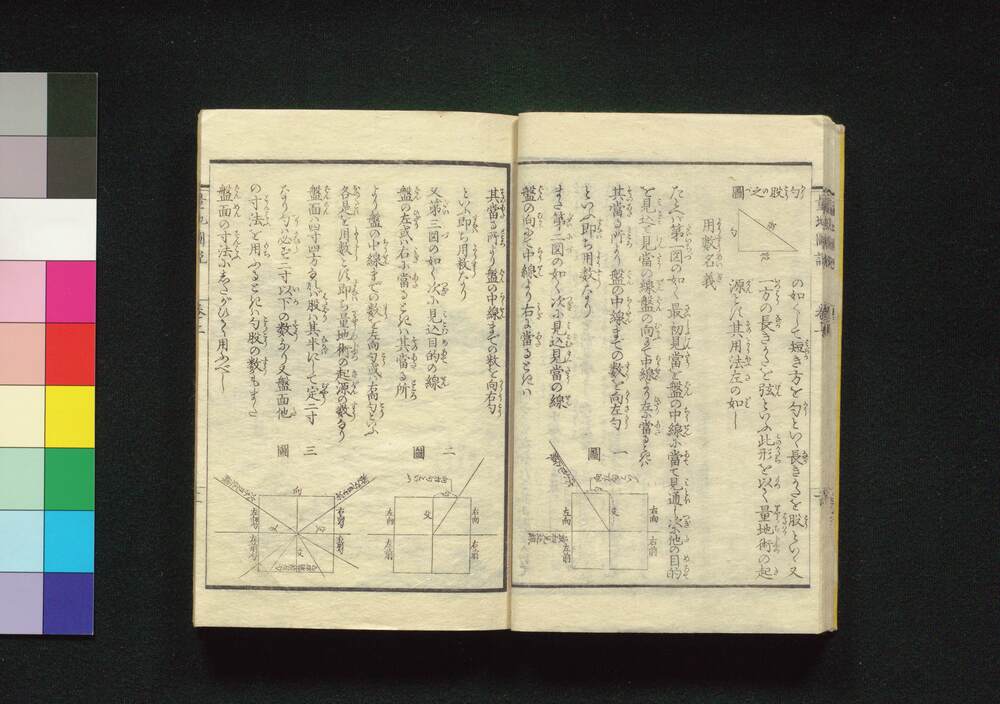 勾股之圖
の如くして短き方を勾といひ長きかたを股といひ又
一方の長きかたを弦といふ此形を以て量地術の起
源とす其用法左の如し
用數名義
たとへハ第一図の如く最初見當を盤の中線に當て見通し次に他の目的
を見込て見當の線盤の向ふにて中線より左に當るときハ
其當る所より盤の中線までの数を向左勾
といふ即ち用数なり
また第二図の如く次に見込見當の線
盤の向ふにて中線より右に當るときハ
一圖
左向
右向
左前
右前
其當る所より盤の中線までの数を向右勾
といふ即ち用数なり
又第三図の如く次に見込目的の線
盤の左或ハ右に當るときハ其當る所
より盤の中線までの数を左向勾或右向勾といふ
各是を用数とす即ち量地術の起源の数なり
盤面ハ四寸四方なるが股ハ其半にして定二寸
なり勾ハ必ず二寸以下の数なり又盤面他
の寸法を用ふるときハ勾股の数もまた
盤面の寸法にしたがひて用ふべし
二圖
左向
右向
左前
右前
三圖
左向
右向
左前
右前